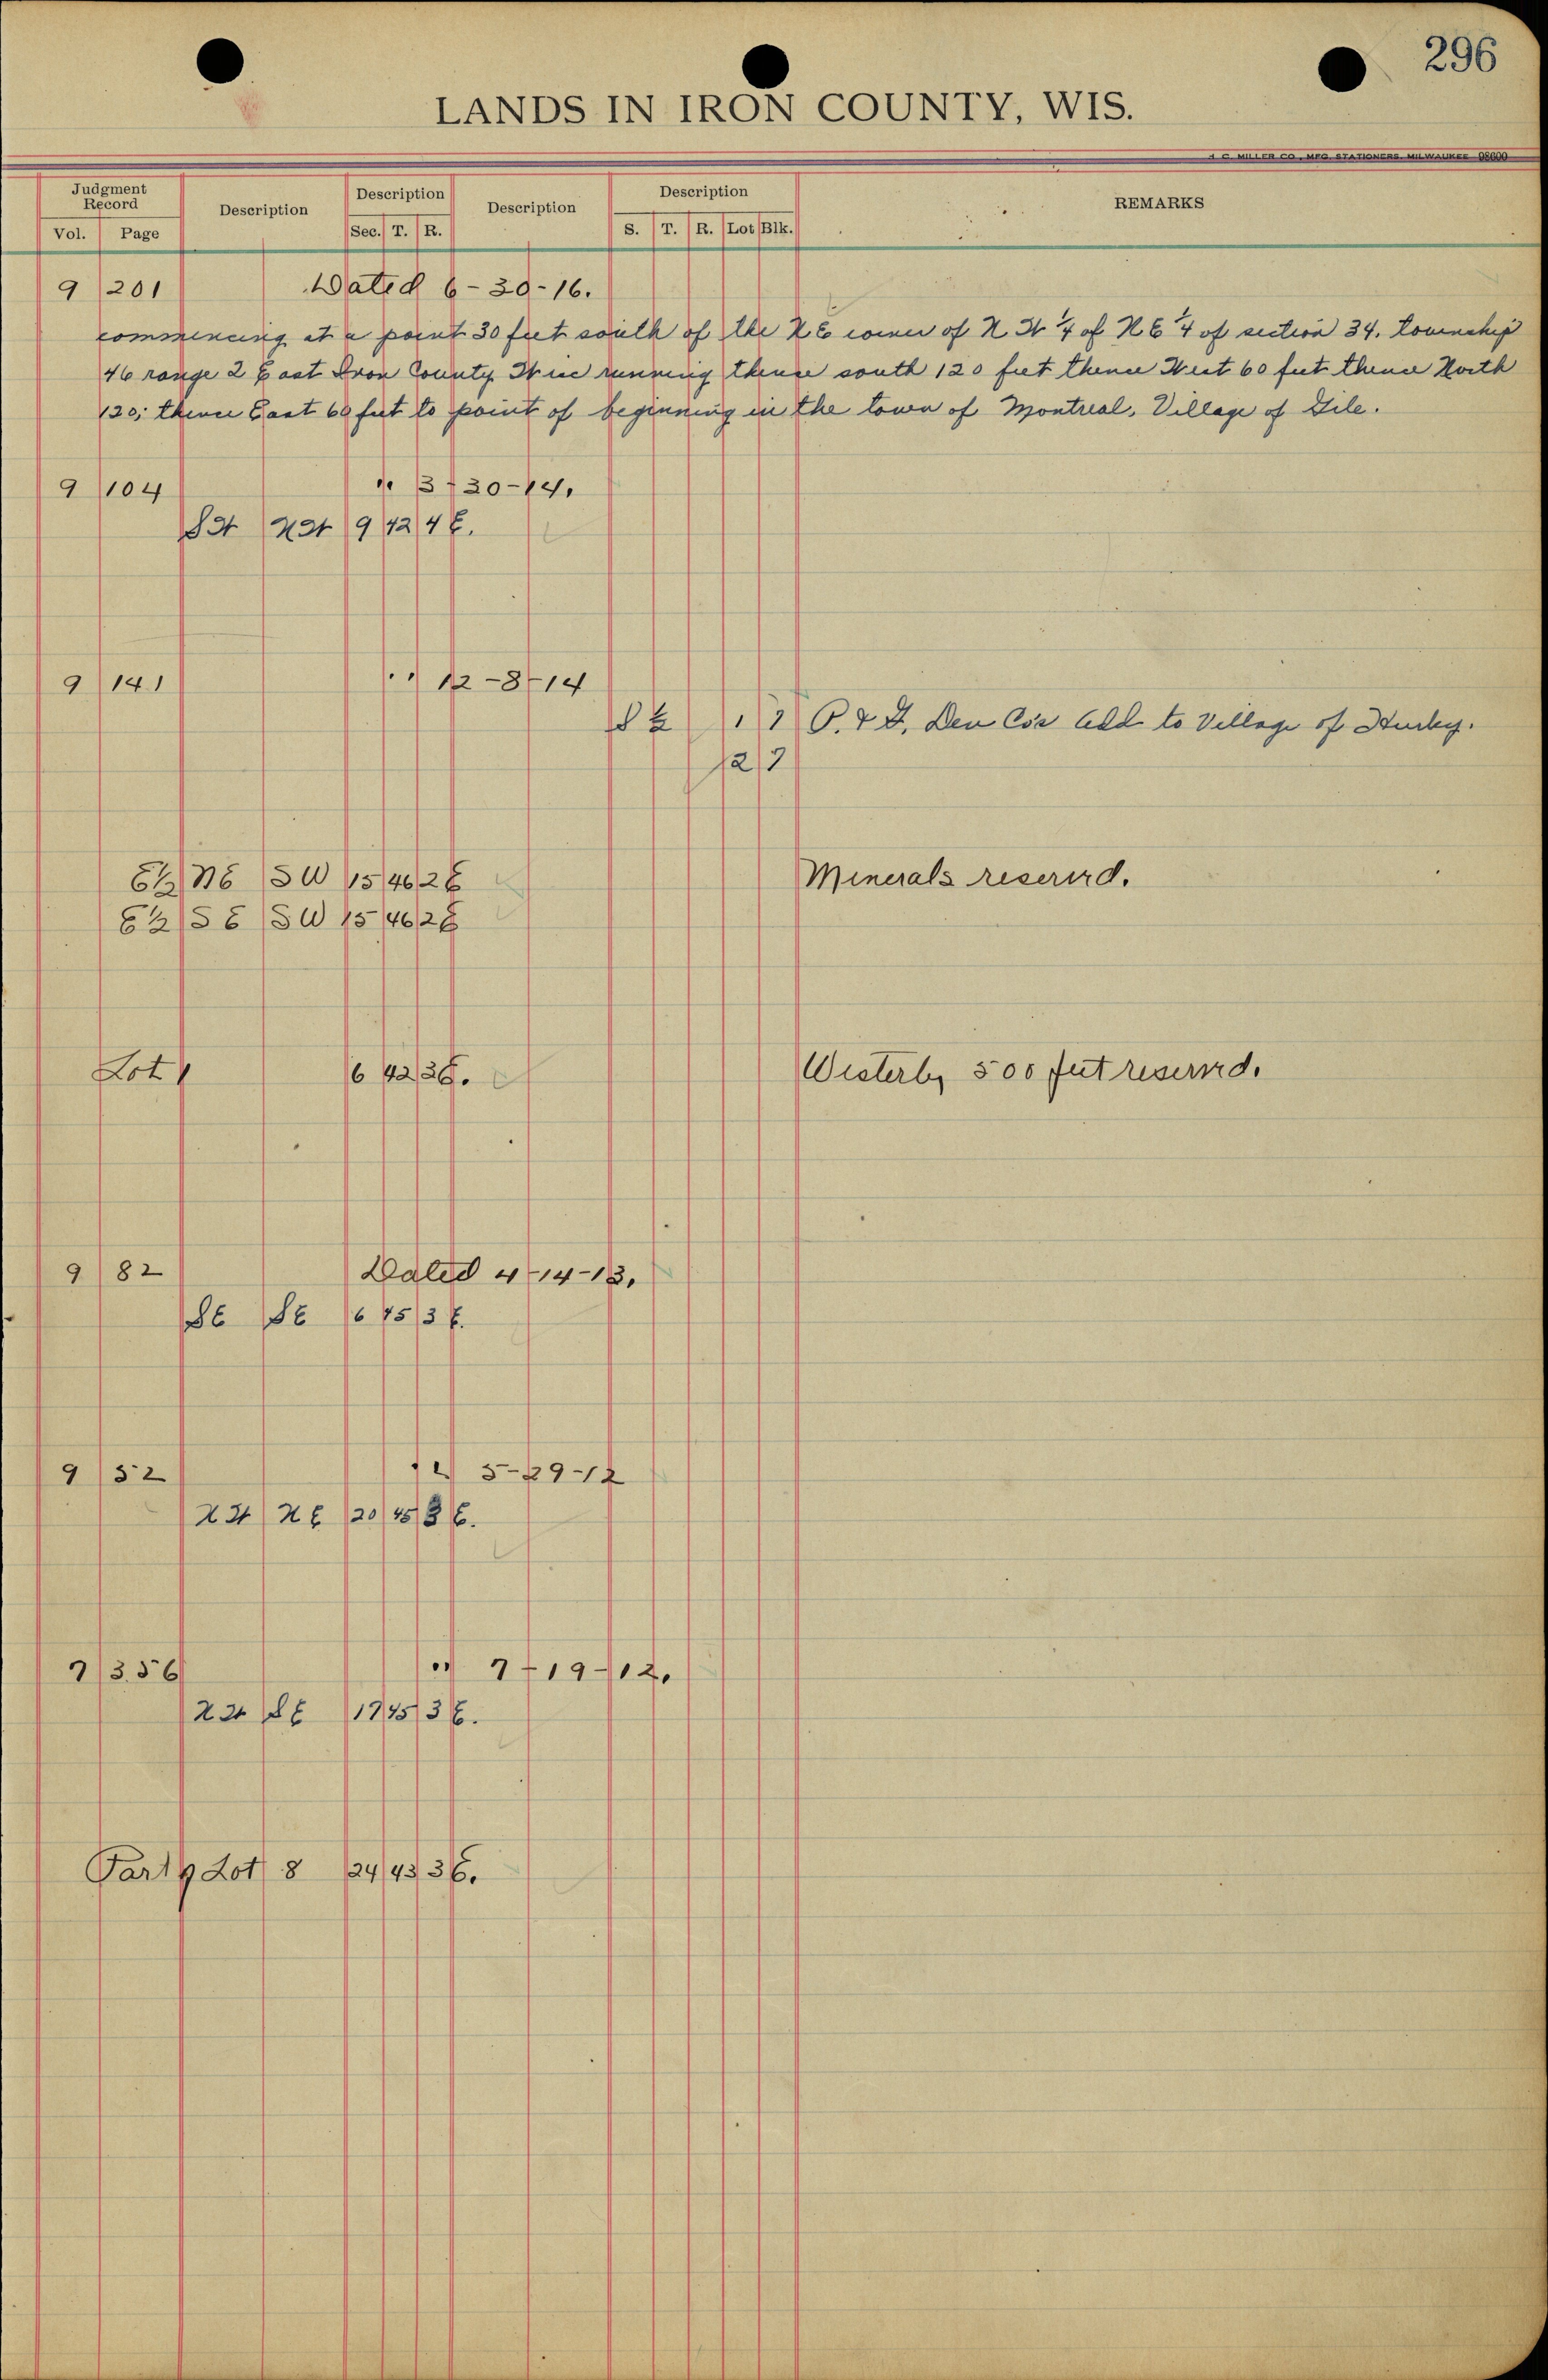 296
LANDS IN IRON COUNTY, WIS.
H. C. MILLER CO., MFG. STATIONERS, MILWAUKEE 98600
Judgment Record Description Description Description Description REMARKS
Vol. Page Sec. T. R. S. T. R. Lot Blk.
9 201 Dated 6-30-16.
commencing at a point 30 feet south of the NE corner of N W 1/4 of N E 1/4 of section 34. Township
46 range 2 East Iron County Wisc running thence south 120 feet thence West 60 feet thence North
120; thence East 60 feet to point of beginning in the town of Montreal, Village of Gile.
9 104 " 3-30-14.
SW NW 9 42 4 E.
9 141 " 12-8-14
S 1/2 1 7 P. & D. Dev Co's Add to Village of Hurley.
12 7
E1/2 NE SW 15 46 2 E Minerals reserved.
E1/2 SE SW 15 46 2 E
Lot 1 6 42 3E. Westerly 500 feet reserved.
9 82 Dated 4-14-13.
SE SE 6 45 3 E.
9 52 " 5-29-12
NW NE 20 45 3 E.
7 356 " 7-19-12.
NW SE 17 45 3 E.
Part of Lot 8 24 43 3E.